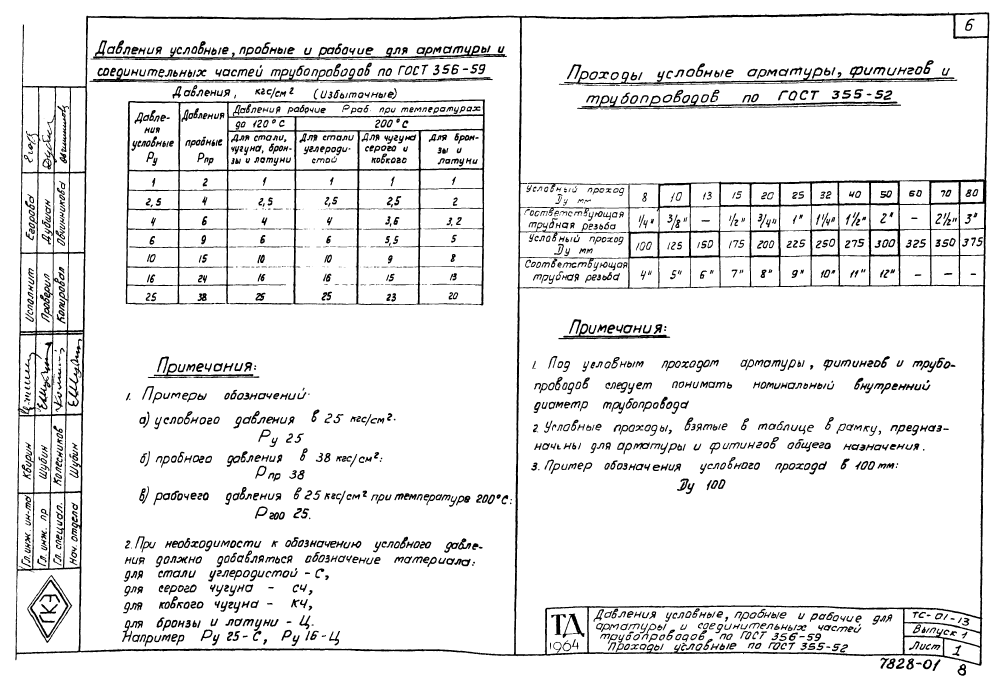 6
Давления условные, пробные и рабочие для арматуры и
соединительных частей трубопроводов по ГОСТ 356-59
Давления, кгс/см² (Избыточные)
Давления условные Ру | Давления пробные Рпр | Давления рабочие Рраб при температурах
до 120°С | 200°С
Для стали, чугуна, бронзы и латуни | Для стали углеродистой | Для чугуна серого и ковкого | Для бронзы и латуни
1 | 2 | 1 | 1 | 1 | 1
2,5 | 4 | 2,5 | 2,5 | 2,5 | 2
4 | 6 | 4 | 4 | 3,6 | 3,2
6 | 9 | 6 | 6 | 5,5 | 5
10 | 15 | 10 | 10 | 9 | 8
16 | 24 | 16 | 16 | 15 | 13
25 | 38 | 25 | 25 | 23 | 20
Примечания:
1. Примеры обозначений:
а) условного давления в 25 кгс/см²:
Ру 25
б) пробного давления в 38 кгс/см²:
Рпр 38
в) рабочего давления в 25 кгс/см² при температуре 200°С:
Р200 25.
2. При необходимости к обозначению условного давле-
ния должно добавляться обозначение материала:
для стали углеродистой - С,
для серого чугуна - СЧ,
для ковкого чугуна - КЧ,
для бронзы и латуни - Ц.
Например Ру 25-С, Ру 16-Ц
Проходы условные арматуры, фитингов и
трубопроводов по ГОСТ 355-52
Условный проход Dу мм | 8 | 10 | 13 | 15 | 20 | 25 | 32 | 40 | 50 | 60 | 70 | 80
Соответствующая трубная резьба | 1/4" | 3/8" | — | 1/2" | 3/4" | 1" | 1 1/4" | 1 1/2" | 2" | — | 2 1/2" | 3"
Условный проход Dу мм | 100 | 125 | 150 | 175 | 200 | 225 | 250 | 275 | 300 | 325 | 350 | 375
Соответствующая трубная резьба | 4" | 5" | 6" | 7" | 8" | 9" | 10" | 11" | 12" | — | — | —
Примечания:
1. Под условным проходом арматуры, фитингов и трубо-
проводов следует понимать номинальный внутренний
диаметр трубопровода
2. Условные проходы, взятые в таблице в рамку, предназ-
начены для арматуры и фитингов общего назначения.
3. Пример обозначения условного прохода в 100 мм:
Dу 100
Гл. инж. ин-та | Квирин
Гл. инж. пр | Шубин
Гл. специал. | Колесников
Нач. отдела | Шубин
Исполнит | Егорова
Проверил | Дубман
Копировал | Овчинникова
ГКЭ
ТД
1964
Давления условные, пробные и рабочие для
арматуры и соединительных частей
трубопроводов, по ГОСТ 356-59
Проходы условные по ГОСТ 355-52
ТС-01-13
Выпуск 1
Лист 1
7828-01 8